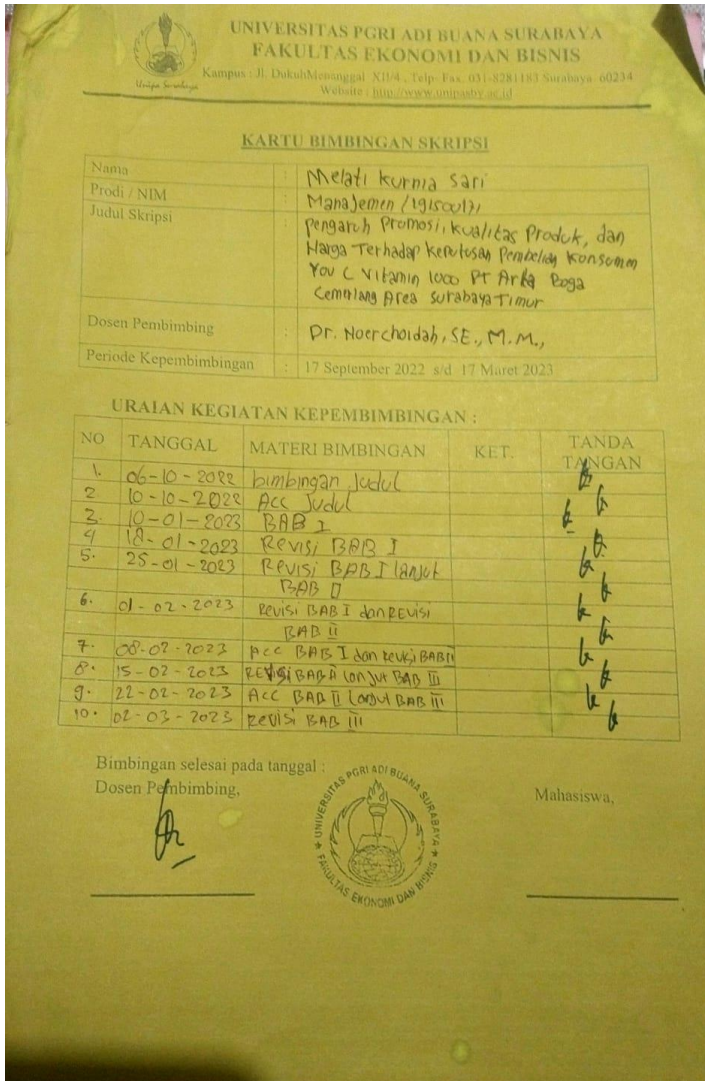 UNIVERSITAS PGRI ADI BUANA SURABAYA
FAKULTAS EKONOMI DAN BISNIS
Kampus : Jl. DukuhMenanggal XII/4 , Telp- Fax. 031-8281183 Surabaya 60234
Website : http://www.unipasby.ac.id
Unipa Surabaya
KARTU BIMBINGAN SKRIPSI
Nama : Melati Kurnia Sari
Prodi / NIM : Manajemen /
Judul Skripsi : Pengaruh Promosi, Kualitas Produk, dan
Harga Terhadap Keputusan Pembelian Konsumen
You C Vitamin 1000 PT Arta Boga
Cemerlang Area Surabaya Timur
Dosen Pembimbing : Dr. Noerchoidah, SE., M.M.,
Periode Kepembimbingan : 17 September 2022 s/d 17 Maret 2023
URAIAN KEGIATAN KEPEMBIMBINGAN :
NO TANGGAL MATERI BIMBINGAN KET. TANDA TANGAN
1. 06-10-2022 bimbingan Judul
2 10-10-2022 ACC Judul
3. 10-01-2023 BAB I
4 18-01-2023 Revisi BAB I
5. 25-01-2023 Revisi BAB I lanjut
BAB II
6. 01-02-2023 Revisi BAB I dan REVISI
BAB II
7. 08-02-2023 Acc BAB I dan revisi BAB II
8. 15-02-2023 REVISI BAB II lanjut BAB III
9. 22-02-2023 Acc BAB II lanjut BAB III
10. 02-03-2023 Revisi BAB III
Bimbingan selesai pada tanggal :
Dosen Pembimbing,
Mahasiswa,
UNIVERSITAS PGRI ADI BUANA SURABAYA
FAKULTAS EKONOMI DAN BISNIS